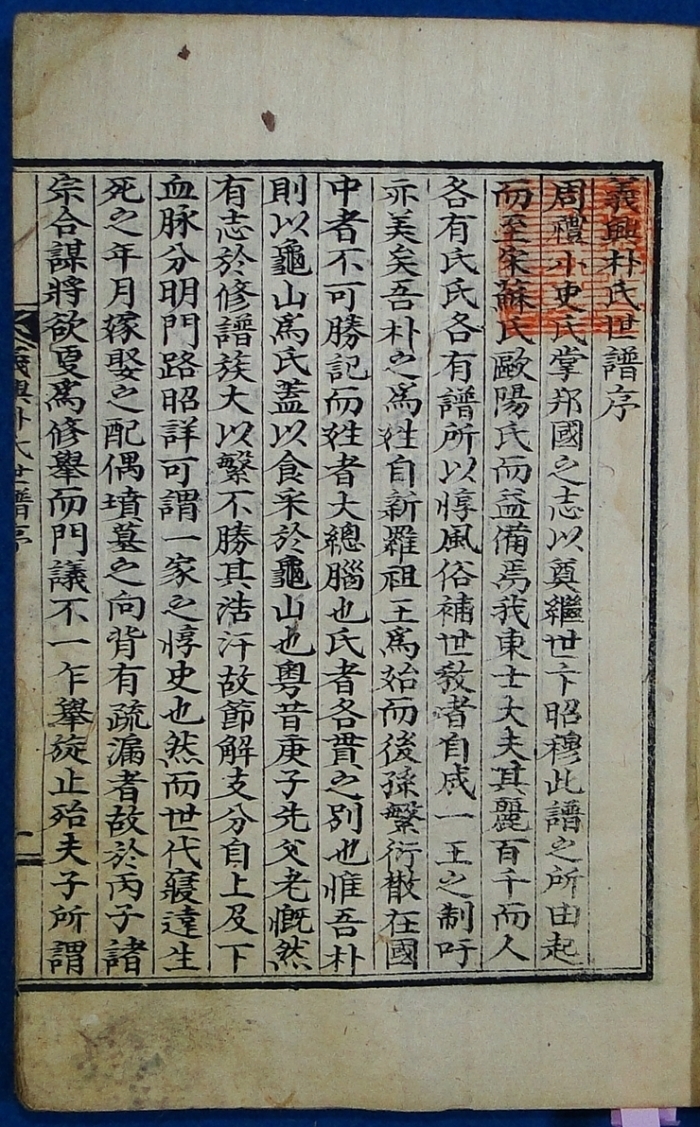 義興朴氏世譜序
周禮小史氏掌邦國之志以奠繼世卞昭穆此譜之所由起
而至宋蘇氏歐陽氏而益備焉我東士大夫其麗百千而人
各有氏氏各有譜所以惇風俗補世敎者自成一王之制吁
亦美矣吾朴之爲姓自新羅祖王爲始而後孫繁衍散在國
中者不可勝記而姓者大總腦也氏者各貫之別也惟吾朴
則以龜山爲氏蓋以食采於龜山也粤昔庚子先父老慨然
有志於修譜族大以繁不勝其浩汗故節解支分自上及下
血脉分明門路昭詳可謂一家之惇史也然而世代寢遠生
死之年月嫁娶之配偶墳墓之向背有疏漏者故於丙子諸
宗合謀將欲更爲修擧而門議不一乍擧旋止殆夫子所謂
義興朴氏世譜序
一